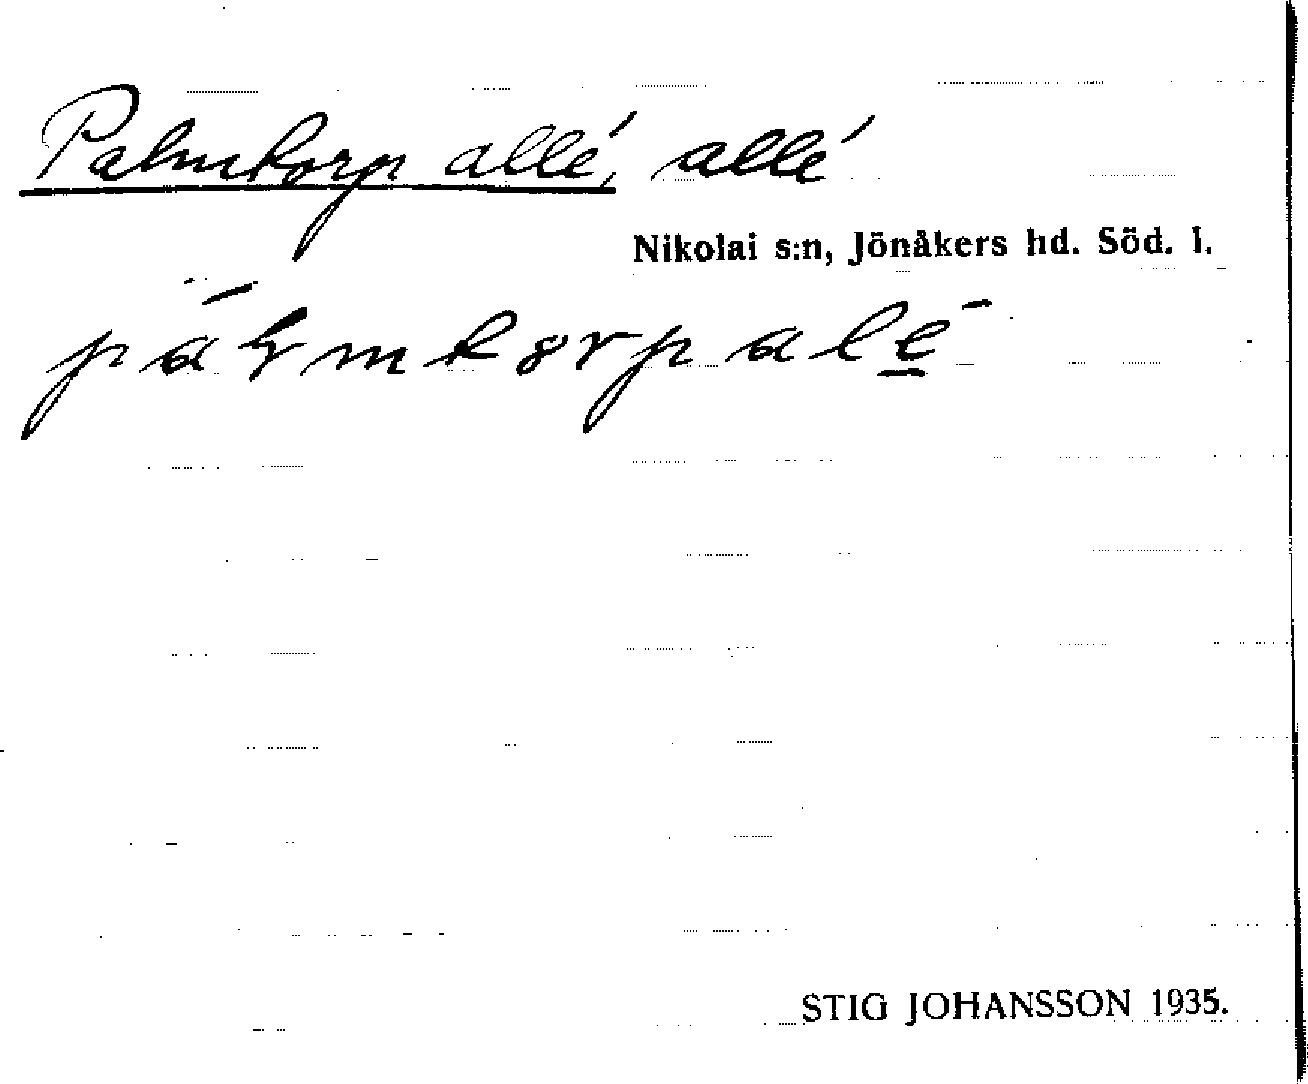 Palmkorp allé, allé
Nikolai s:n, Jönåkers hd. Söd. l.
STIG JOHANSSON 1935.